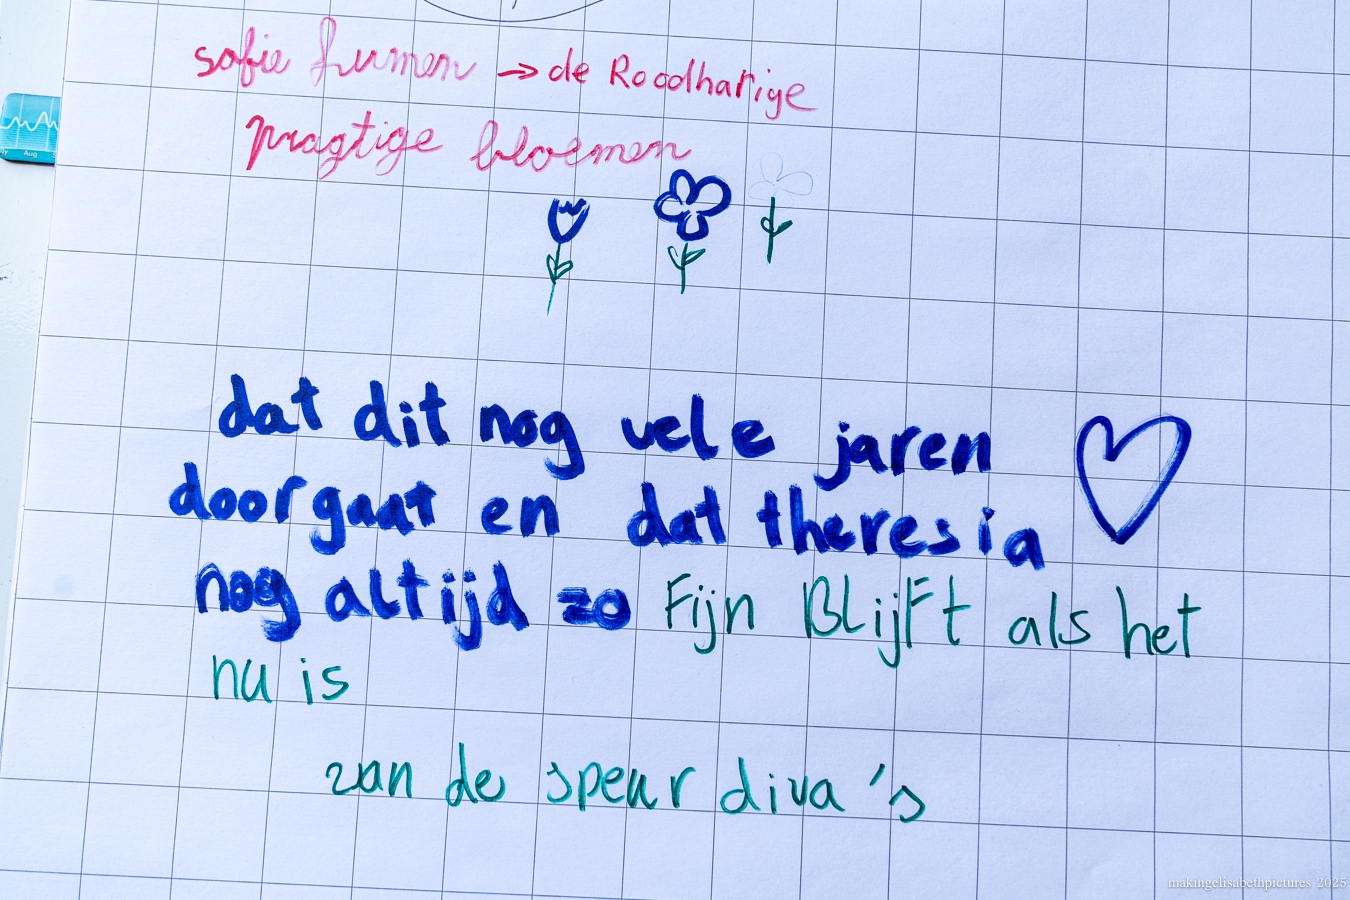 sofie humen → de Roodharige
pragtige bloemen
dat dit nog vele jaren
doorgaat en dat theresia
nog altijd zo Fijn BLijFt als het
nu is
van de speur diva's
Aug
makingelisabethpictures 2025